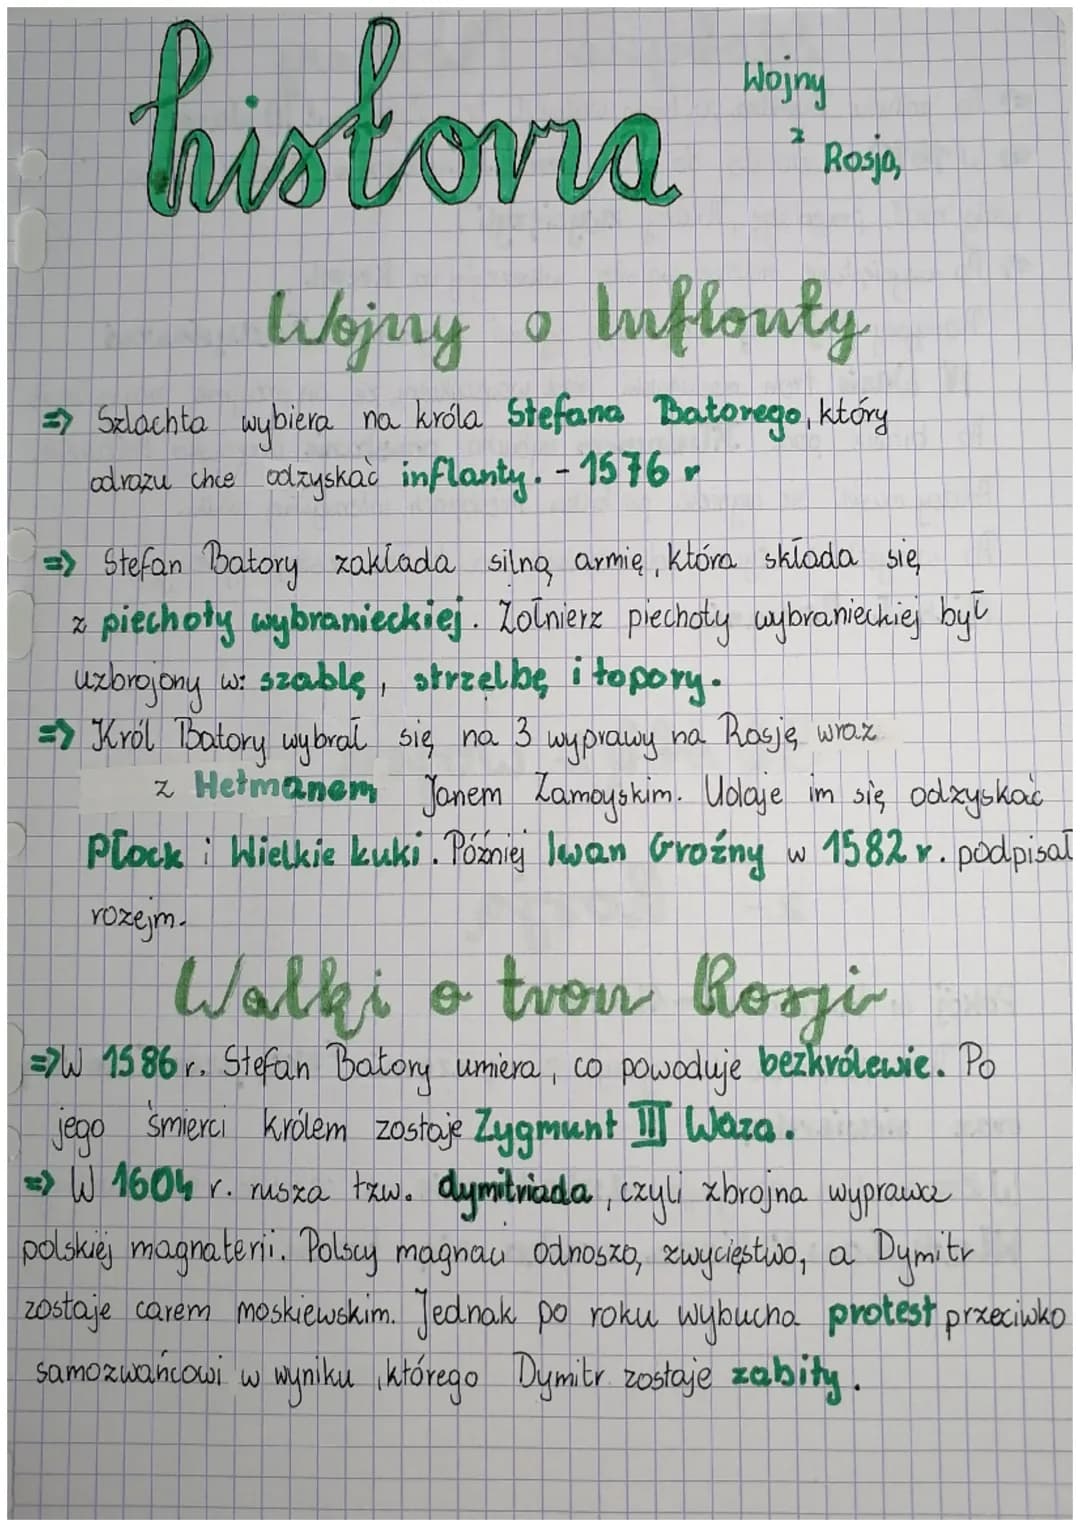 historia
Wojny
z
Rosją
Wojny o Inflanty
=> Szlachta wybiera na króla Stefana Batorego, który
odrazu chce odzyskać inflanty. - 1576 r
=> Stefan Batory zakłada silną armię, która składa się
z piechoty wybranieckiej. Żołnierz piechoty wybranieckiej był
uzbrojony w: szablę, strzelbę i topory.
=> Król Batory wybrał się na 3 wyprawy na Rosję wraz
z Hetmanem Janem Zamoyskim. Udaje im się odzyskać
Płock i Wielkie Łuki. Później Iwan Groźny w 1582 r. podpisał
rozejm.
Walki o tron Rosji
=> W 1586 r. Stefan Batory umiera, co powoduje bezkrólewie. Po
jego śmierci królem zostaje Zygmunt III Waza.
=> W 1604 r. rusza tzw. dymitriada, czyli zbrojna wyprawa
polskiej magnaterii. Polscy magnaci odnoszą zwycięstwo, a Dymitr
zostaje carem moskiewskim. Jednak po roku wybucha protest przeciwko
samozwańcowi w wyniku, którego Dymitr zostaje zabity.